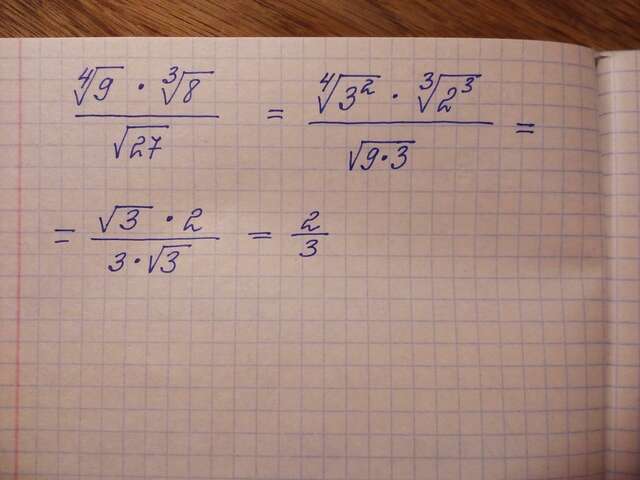 \frac{\sqrt[4]{9} \cdot \sqrt[3]{8}}{\sqrt{27}} = \frac{\sqrt[4]{3^2} \cdot \sqrt[3]{2^3}}{\sqrt{9 \cdot 3}} =
= \frac{\sqrt{3} \cdot 2}{3 \cdot \sqrt{3}} = \frac{2}{3}